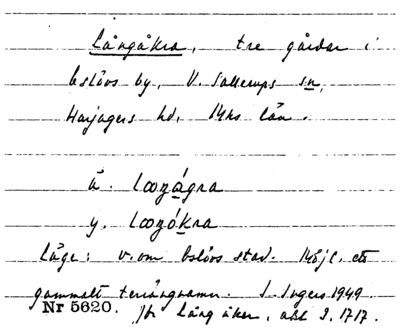 Långåkra, tre gårdar i
Eslövs by, V. Sallerups sn,
Harjagers hd, Mhs län.
ä. lɔŋágra
y. lɔŋókra
Läge: v. om Eslövs stad.
gammalt terrängnamn. I. Ingers 1949.
Nr 5620. Jfr Långåker, abl I. 1717.